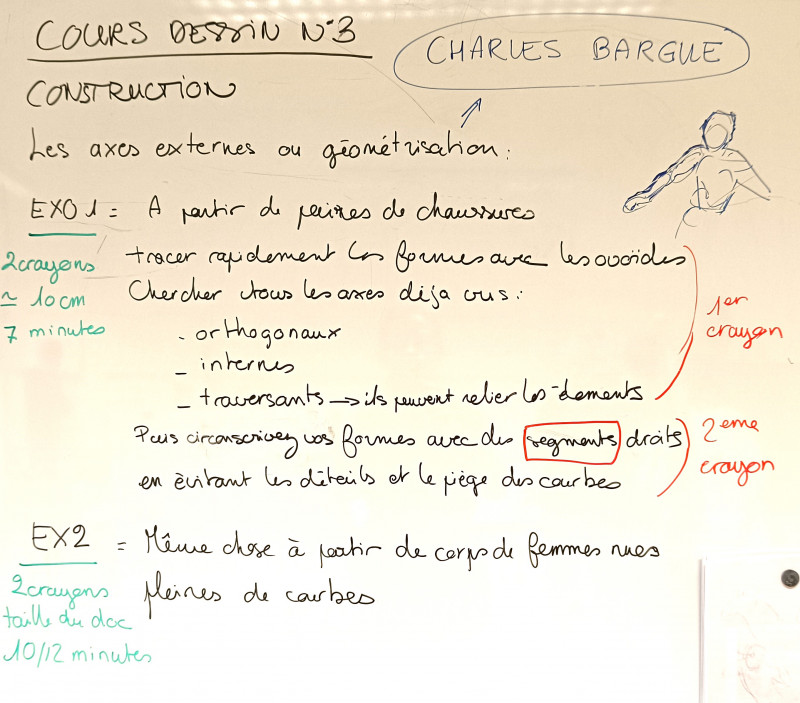 COURS DESSIN N°3
CHARLES BARGUE
CONSTRUCTION
Les axes externes ou géométrisation :
EXO 1 = A partir de paires de chaussures
2 crayons
≃ 10 cm
7 minutes
tracer rapidement les formes avec les ovoïdes
Chercher tous les axes déja vus :
. orthogonaux
_ internes
_ traversants → ils peuvent relier les élements
1er
crayon
Puis circonscrivez vos formes avec des segments droits
en évitant les détails et le piège des courbes
2eme
crayon
EX2 = Même chose à partir de corps de femmes nues
pleines de courbes
2 crayons
taille du doc
10/12 minutes